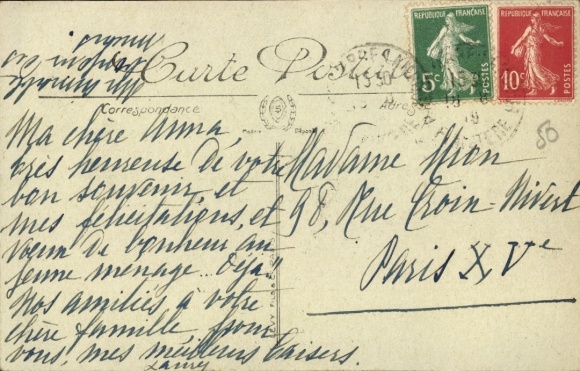 Carte Postale
Correspondance
Adresse
RÉPUBLIQUE FRANÇAISE
5c
POSTES
RÉPUBLIQUE FRANÇAISE
10c
POSTES
Ma chère Anna,
très heureuse de votre
bon souvenir et
mes félicitations, et
vœux de bonheur au
jeune ménage. Déjà"
Nos amitiés à votre
chère famille pour
vous, mes meilleurs baisers.
Madame Mion
98, Rue Croix-Nivert
Paris XVe
50